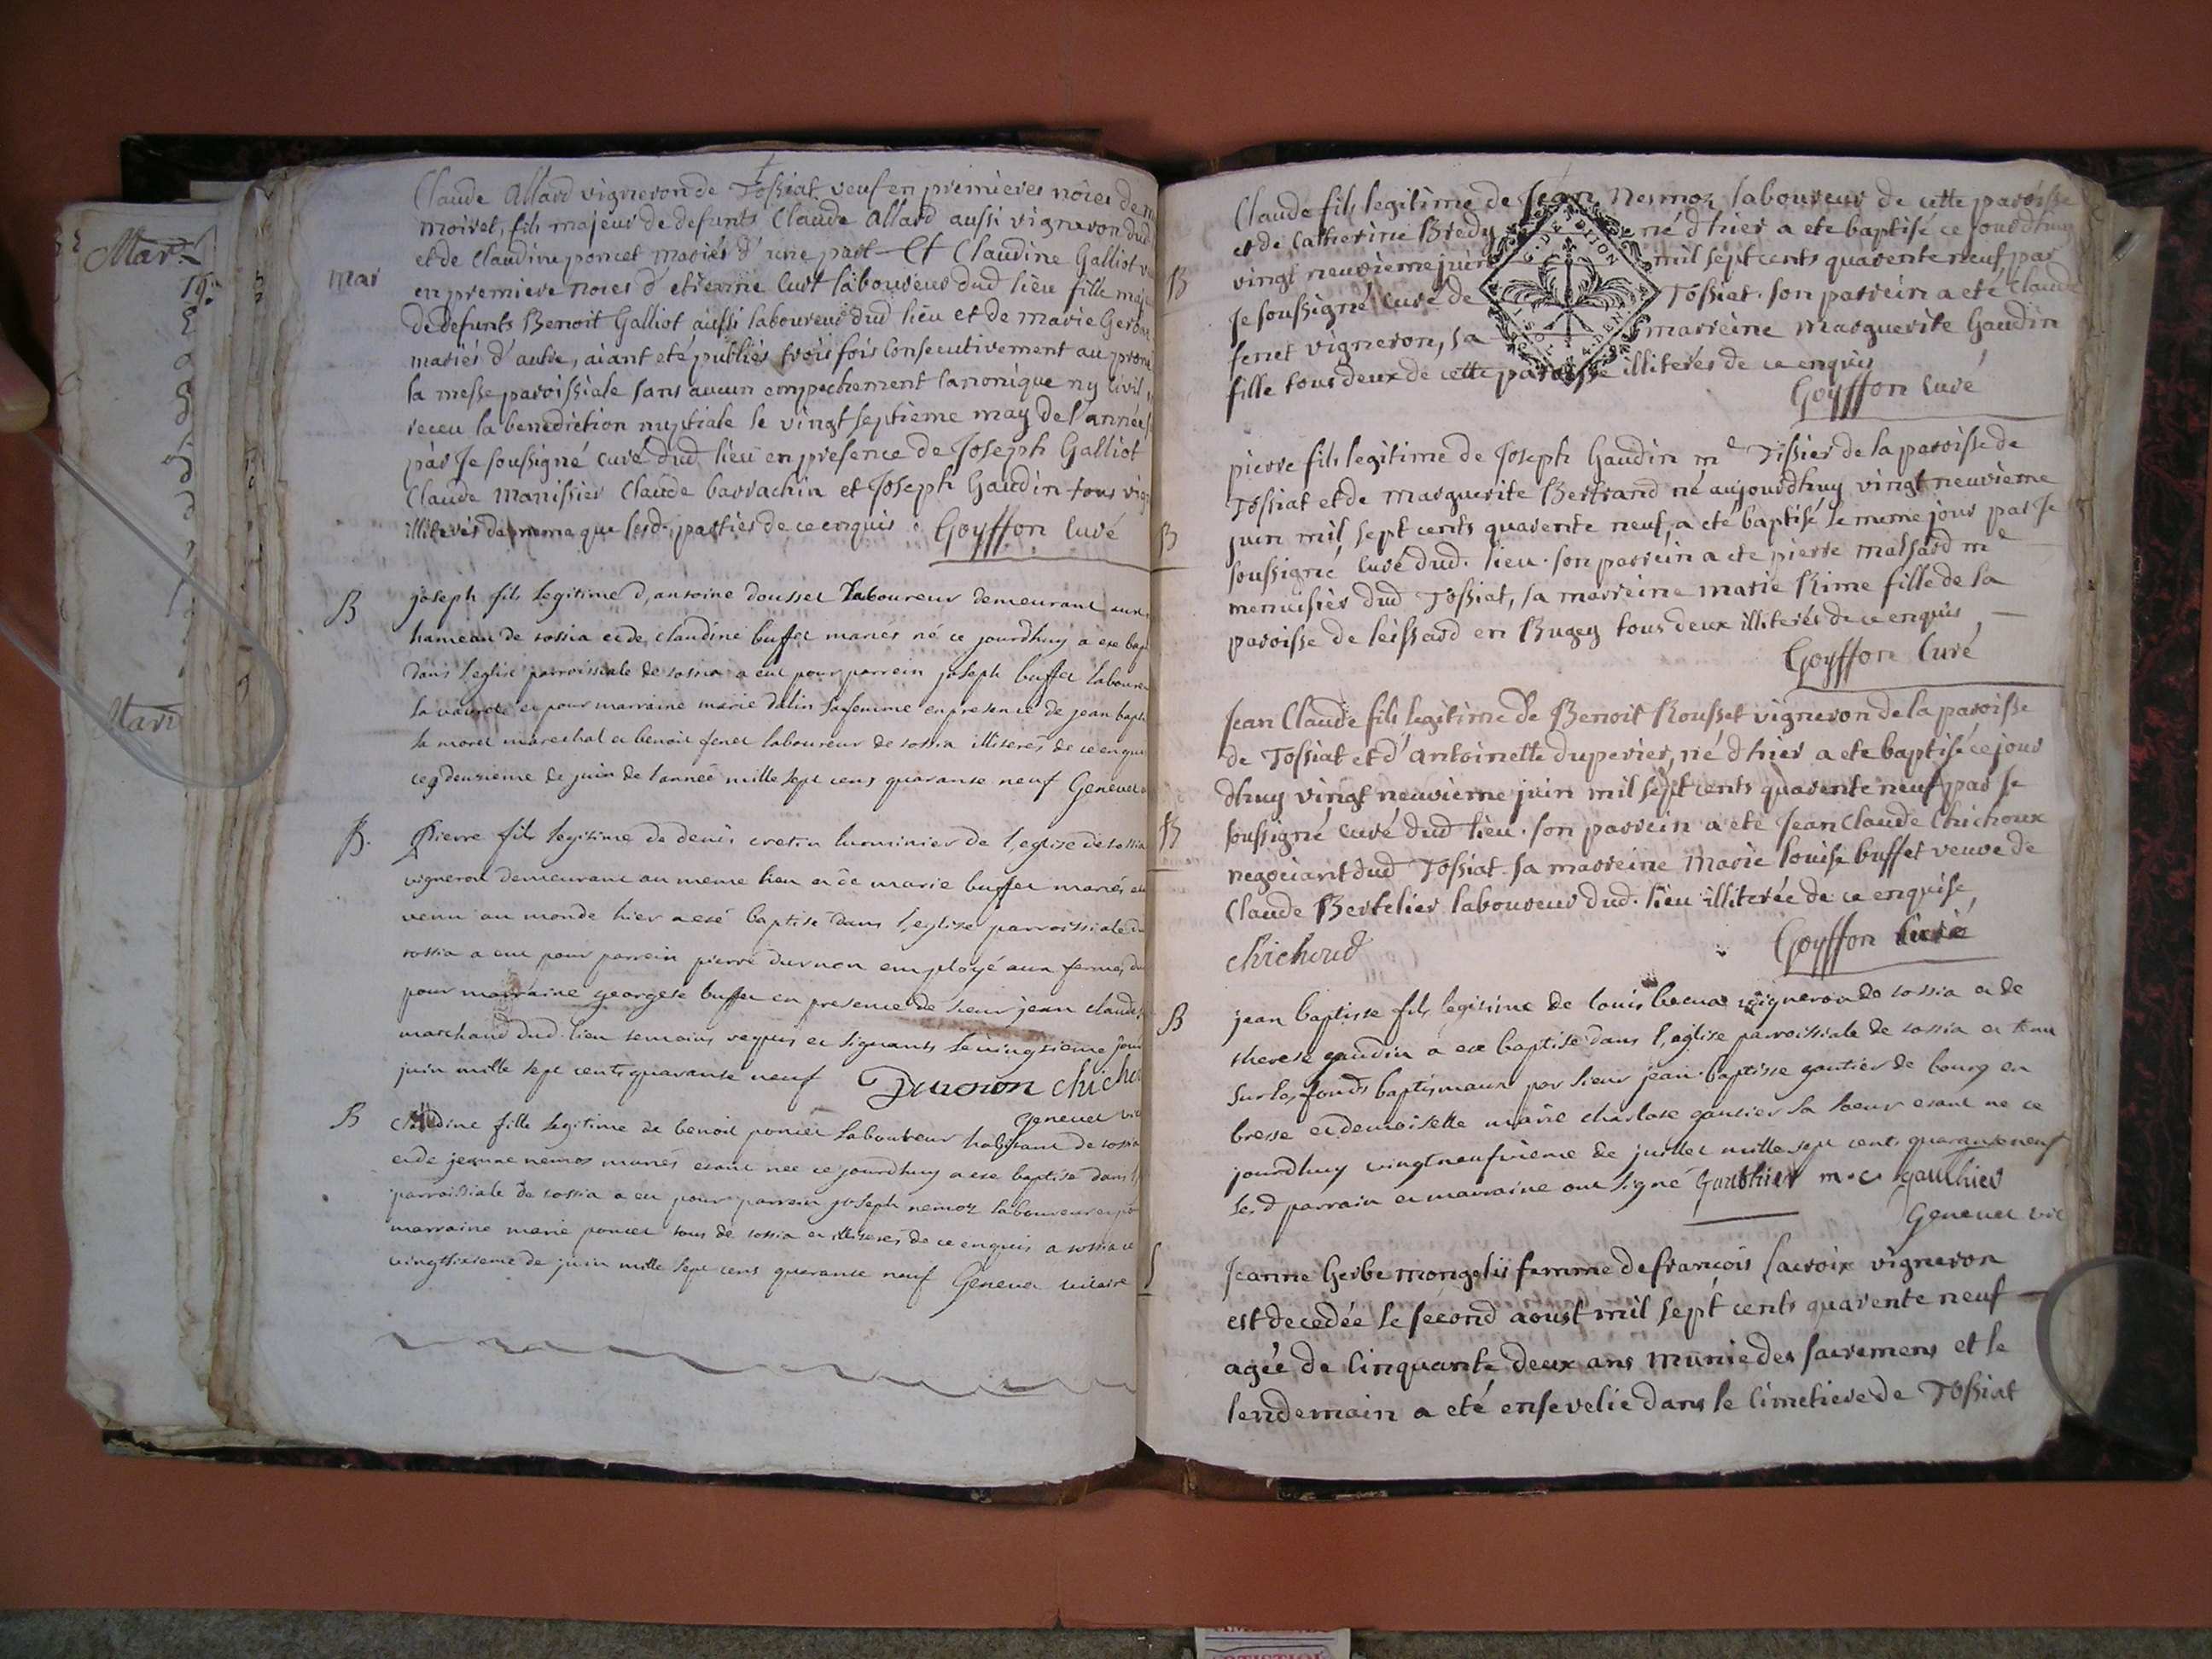 Mar
Claude Allard vigneron de Tossiat veuf en premieres nôces de
moiret, fils majeur de defunts Claude Allard aussi vigneron dud
et de Claudine poncet mariés d'une part Et Claudine Galliot
Mar
en premiere noces d'etienne Curt laboureur dud lieu fille maj
de defunts Benoit Galliot aussi laboureur dud lieu et de marie
mariés d'autre, aiant eté publiés trois fois consecutivement au prone
la messe paroissiale sans aucun empechement canonique ny civil
receu la benediction nuptiale le vingt septieme may de l'année
par Je soussigné curé dud lieu en presence de Joseph Galliot
Claude Manissier Claude barrachin et Joseph Gaudin tous
illiterés de meme que lesd. parties de ce enquis. Goyffon Curé
B
joseph fils legitime d'antoine dousset laboureur demeurant
hameau de tossia et de claudine buffet mariés né ce jourdhuy a ete
dans l'eglise parroissiale de tossia a eut pour parrein joseph buffet
et pour marraine marie dalin sa femme en presence de jean
morel marechal et benoit fenet laboureur de tossia illiterés de ce
deusieme de juin de l'année mille sept cens quarante neuf Genevet
B.
Pierre fils legitime de denis cretin luminier de l'eglise de tossia
vigneron demeurant au meme lieu et de marie buffet mariés
venu au monde hier a eté baptisé dans l'eglise parroissiale
tossia a eut pour parrein pierre durnon employé aux fermes
pour marraine georgete buffet en presence de sieur jean claude
marchand dud. lieu temoins requis et signants le vingtieme jour
juin mille sept cents quarante neuf
Genevet
B
Claudine fille legitime de benoit poncet laboureur habitant de tossia
et de jeanne nemoz mariés etant nee ce jourdhuy a ete baptisé dans
parroissiale de tossia a eu pour parrein joseph nemoz laboureur
marraine marie poncet tous de tossia et illiterés de ce enquis a tossia ce
vingtsixieme de juin mille sept cens quarante neuf Genevet vicaire
Claude fils legitime de Jean Nesmoz laboureur de cette paroisse
et de Catherine Bredy né d'hier a ete baptisé ce jourdhuy
B
vingt neuvieme juin mil sept cents quarente neuf par
Je soussigné curé de Tossiat. son parrein a eté Claude
fenet vigneron, sa marreine Marguerite Gaudin
fille tous deux de cette paroisse illiterés de ce enquis
Goyffon Curé
DIJON
pierre fils legitime de Joseph Gaudin me Tissier de la paroisse de
Tossiat et de Marguerite Bertrand né aujourdhuy vingt neuvieme
B
juin mil sept cents quarente neuf, a eté baptisé le meme jour par Je
soussigné Curé dud. lieu. son parrein a ete pierre Massard me
menuisier dud Tossiat, sa marreine marie Rime fille de la
paroisse de leissard en Bugey tous deux illiterés de ce enquis
Goyffon Curé
Jean Claude fils legitime de Benoit Rousset vigneron de la paroisse
de Tossiat et d'antoinette duperier, né d'hier a ete baptisé ce jour
dhuy vingt neuvieme juin mil sept cents quarente neuf par Je
B
soussigné curé dud lieu. son parrein a eté Jean Claude Chichoux
negociant dud Tossiat. sa marreine Marie louise buffet veuve de
Claude Bertelier laboureur dud. lieu illiterée de ce enquise,
chichoud
Goyffon Curé
B
jean baptiste fils legitime de louis vigneron de tossia et de
therese gaudin a eté baptisé dans l'eglise parroissiale de tossia et tenu
sur les fonds baptismaux par sieur jean baptiste gautier de bourg en
bresse et demoiselle marie charlote gautier sa soeur etant né ce
jourdhuy vingtneufvieme de juillet mille sept cents quarante neuf
lesd parrain et marraine ont signé Gauthier m. c. gauthier
Genevet vic
S
Jeanne Gerbe mongelis femme de françois lacroix vigneron
est decedée le second aoust mil sept cents quarente neuf
agée de Cinquante deux ans munie des sacremens et le
lendemain a eté ensevelie dans le Cimetiere de Tossiat